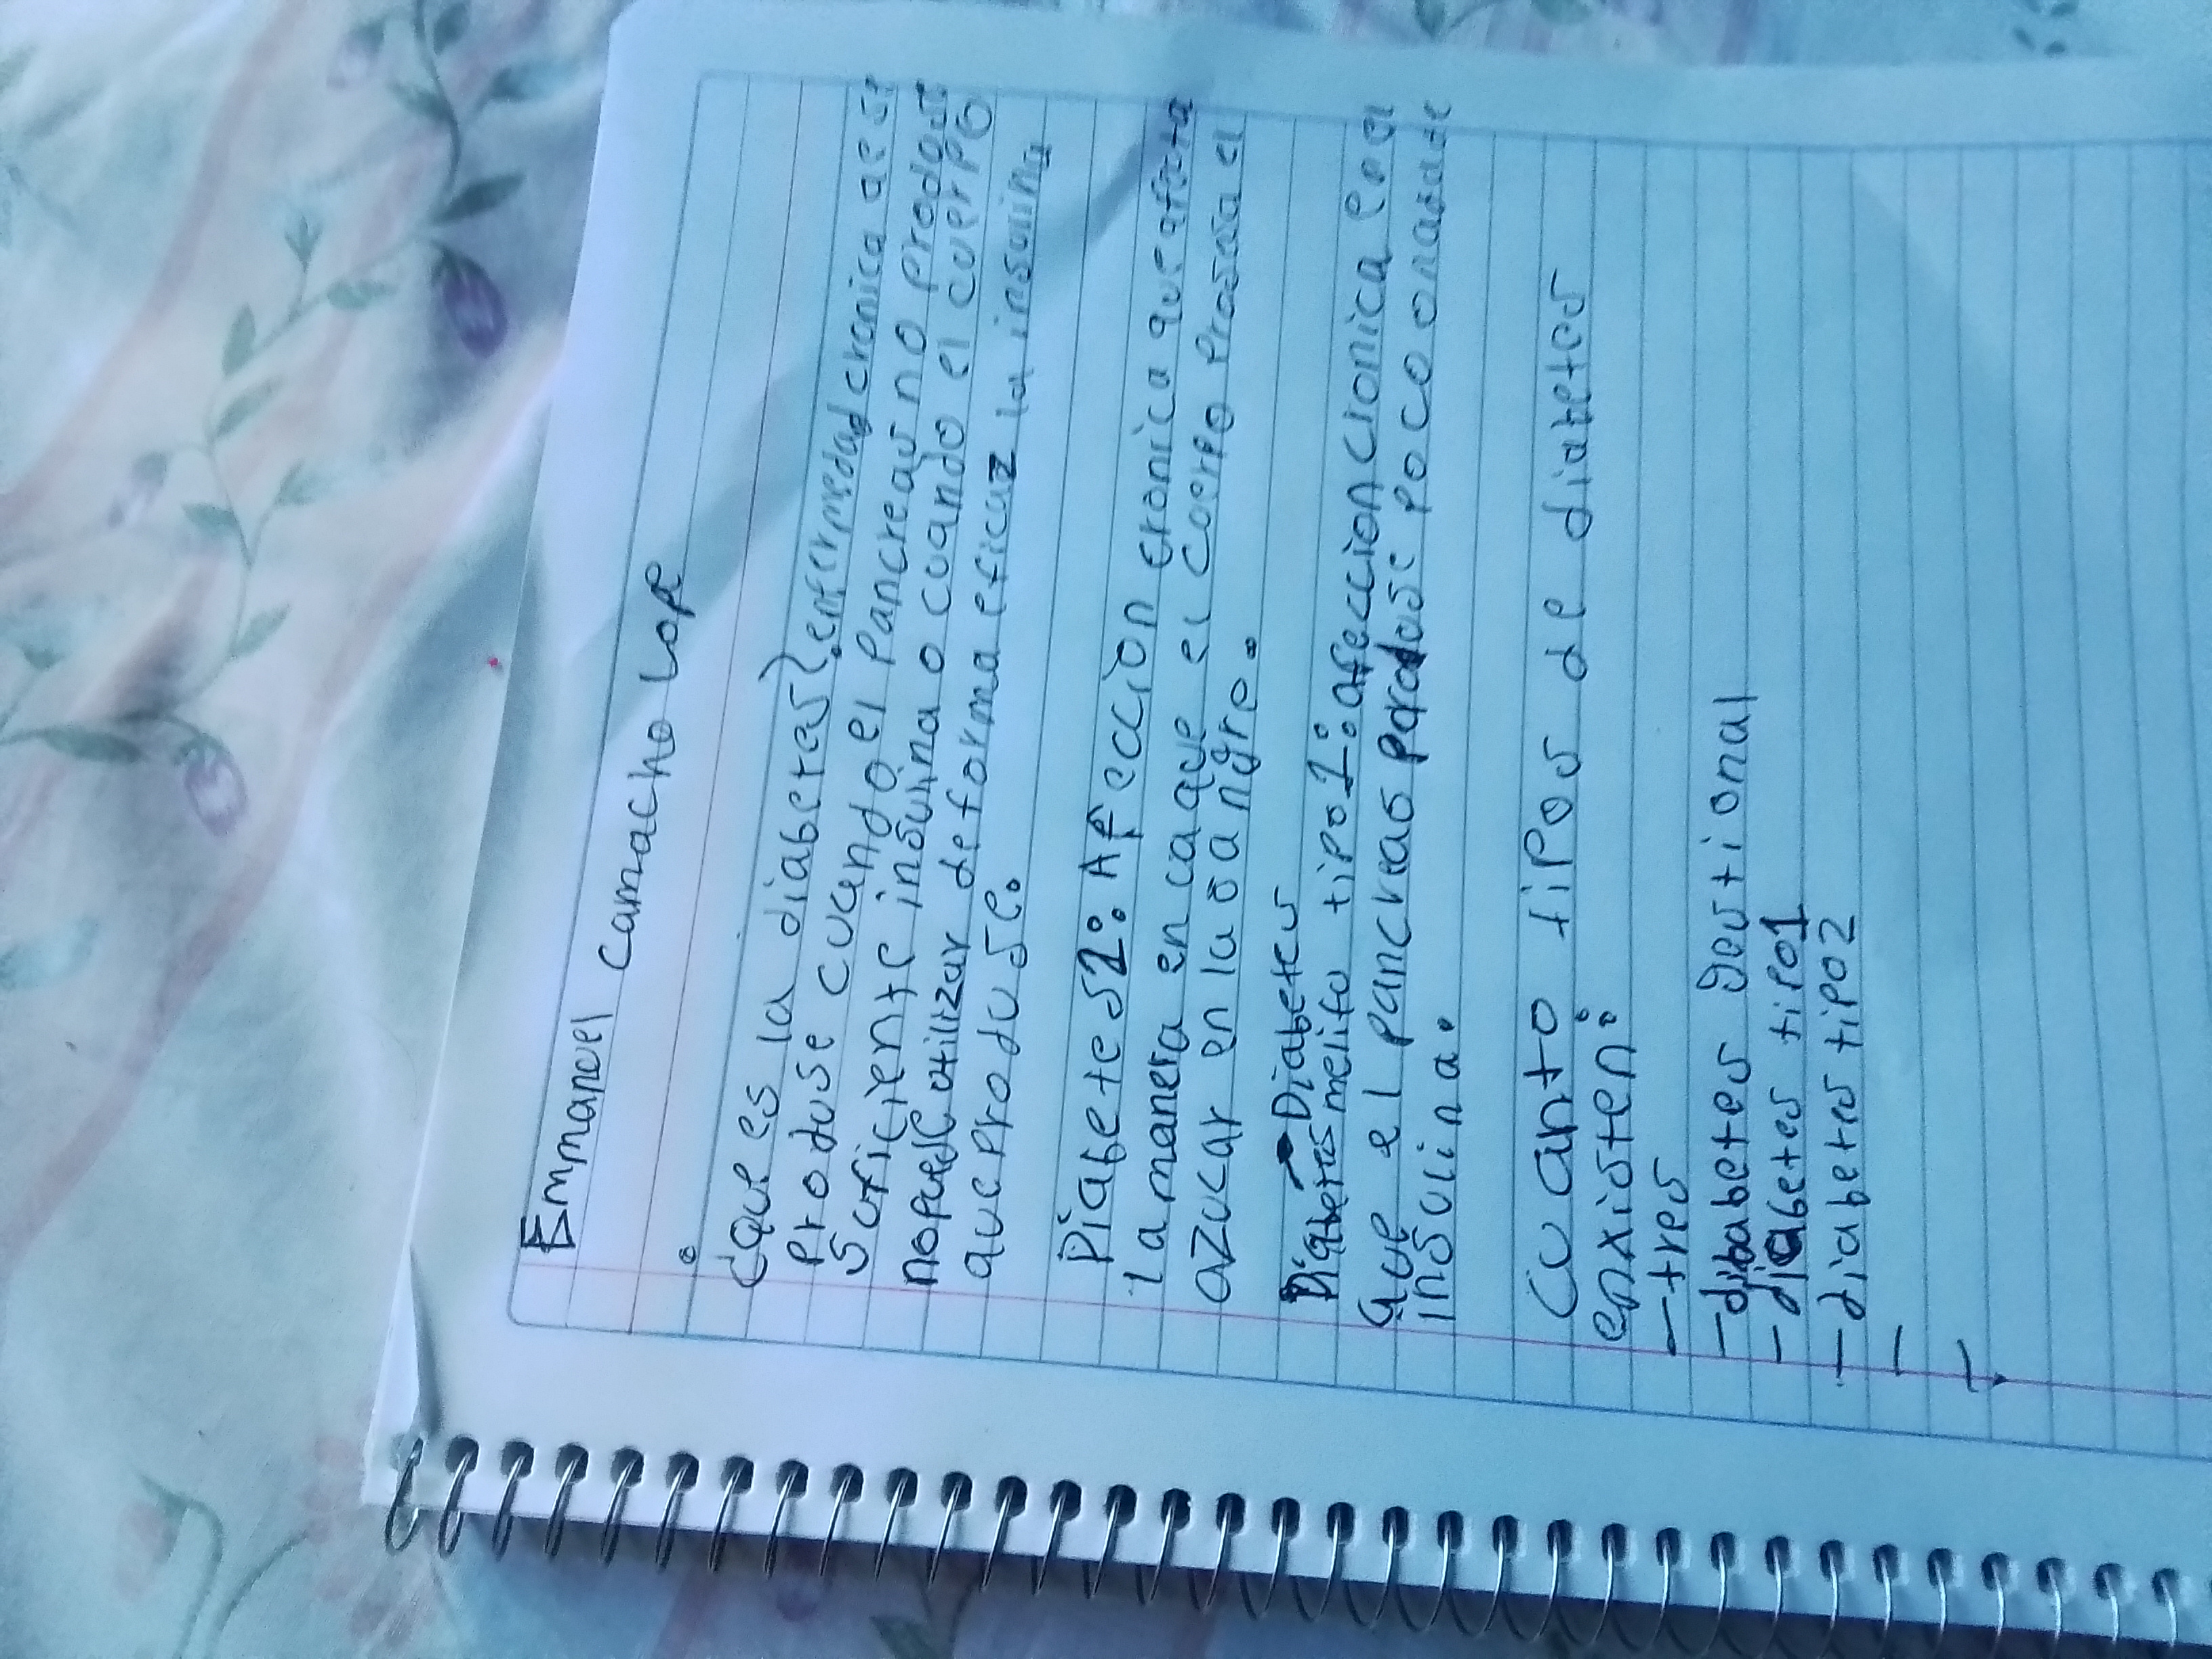 Emmanuel camacho Lop
¿que es la diabetes? enfermedad cronica ae se
produse cuando el Pancreas no produse
suficiente insulina o cuando el cuerpo
no puede utilizar de forma eficaz la insulina
que produse.
Diabetes 2: Afeccion cronica que afecta
la manera en ca que el Cuerpo procesa el
azucar en la sangre.
Diabetes
Diabetes melito tipo 1: afeccion cronica en el
que el pancreas produse poco o nada de
insulina.
cuanto tipos de diabetes
enxisten:
- tres
- diabetes gestional
- diabetes tipo 1
- diabetes tipo 2
-
-